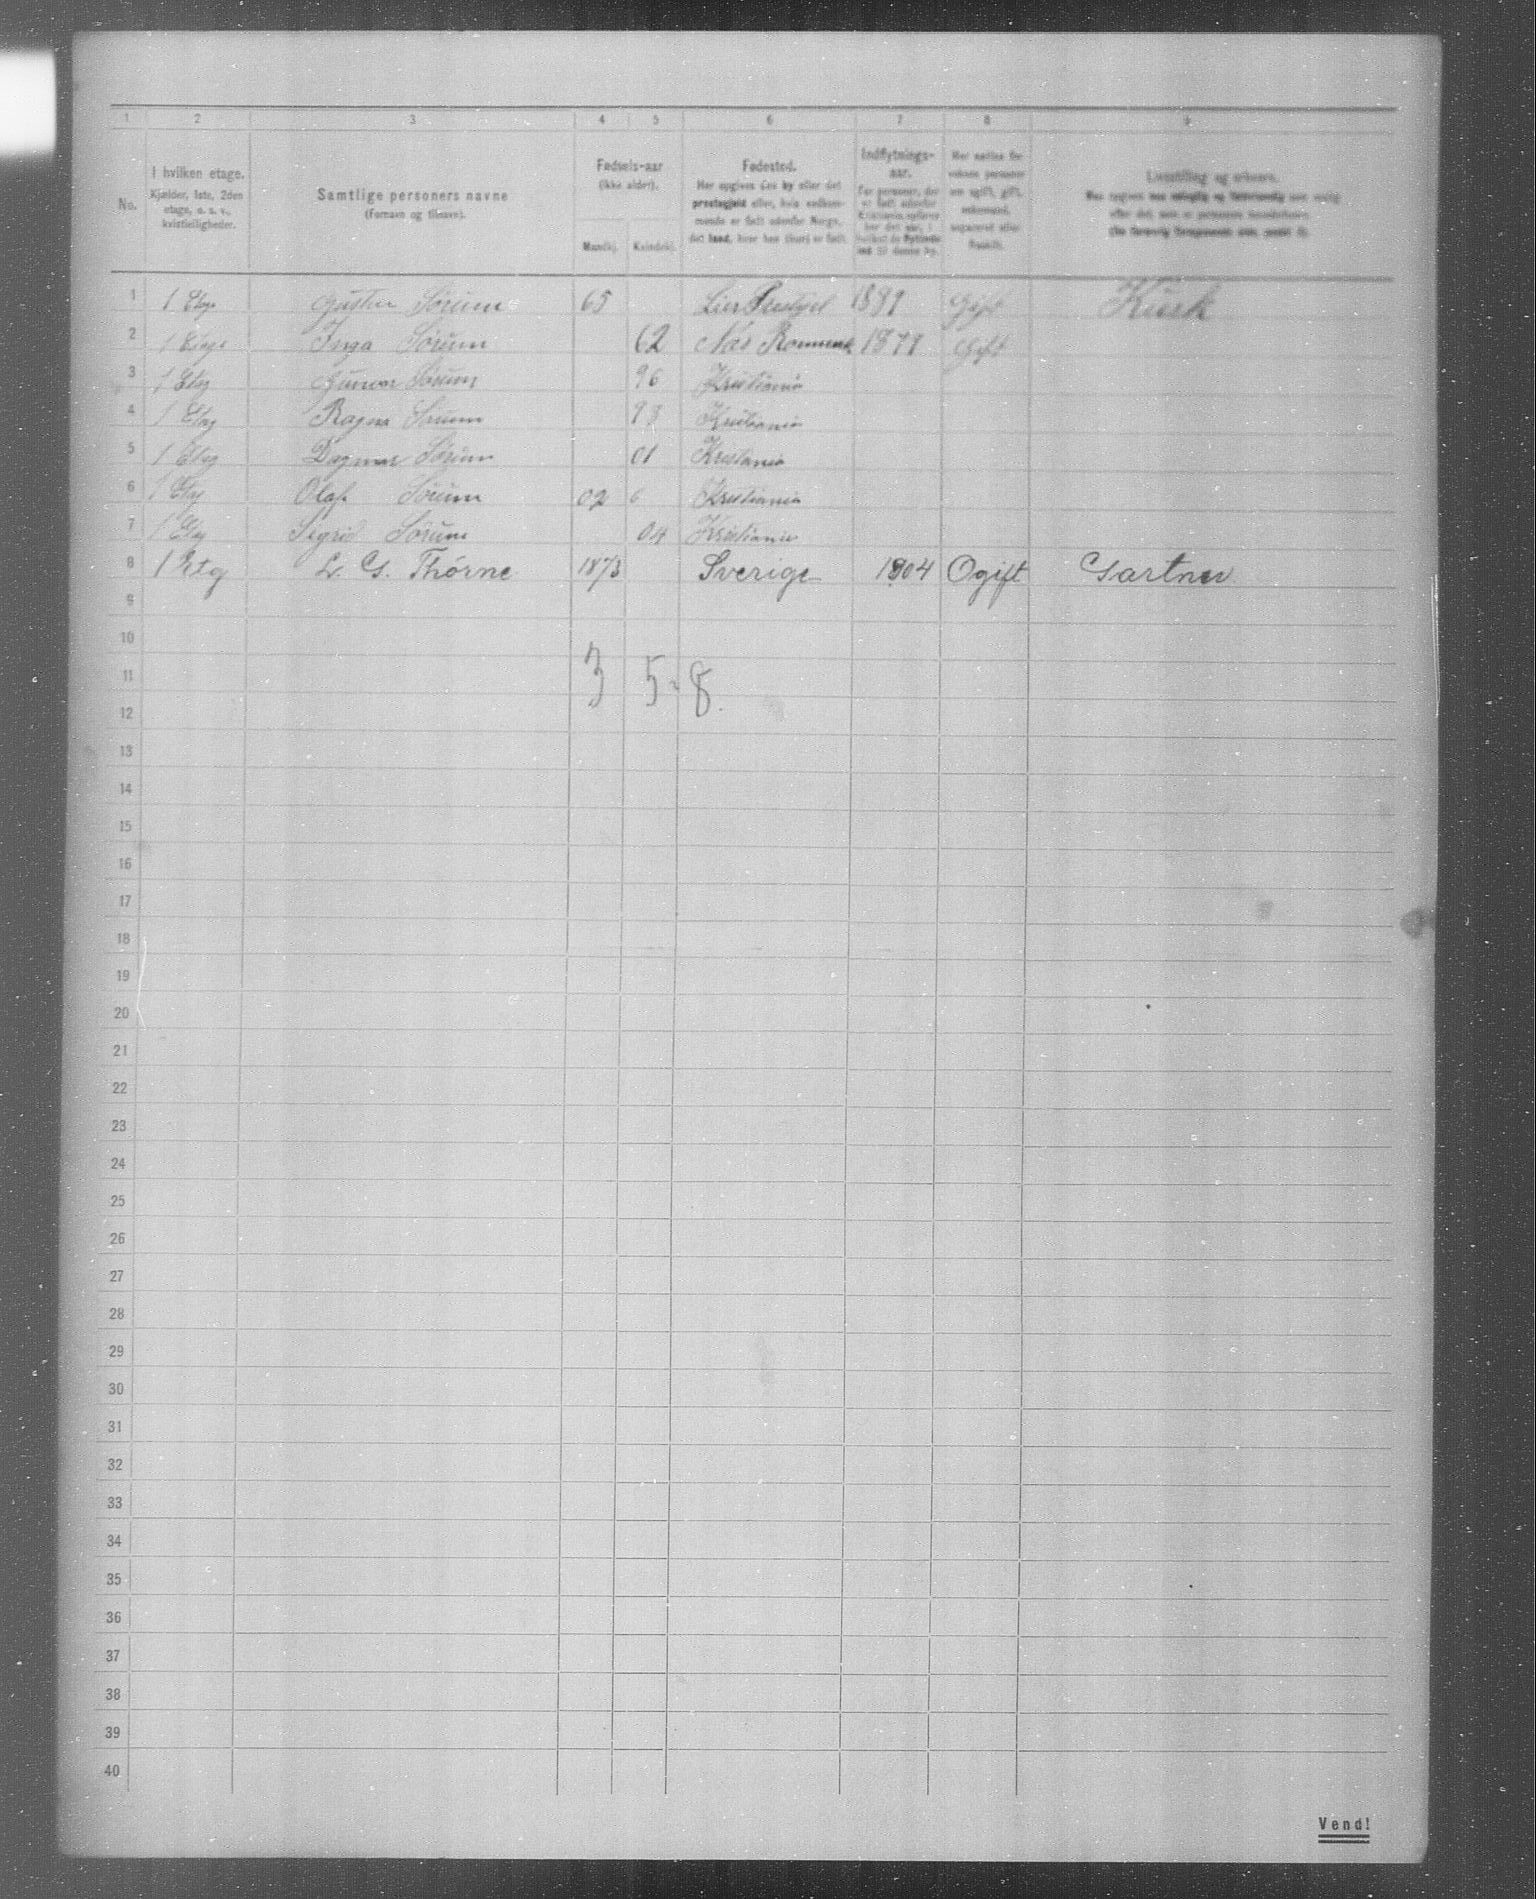 1 2 3 4 5 6 7 8 9
No.
I hvilken etage.
Kjælder, 1ste, 2den
etage, o. s. v.,
kvistleiligheder.
Samtlige personers navne
(Fornavn og tilnavn).
Fødsels-aar
(ikke alder).
Mandkj. Kvindekj.
Fødested.
Her opgives den by eller det
præstegjeld eller, hvis vedkom-
mende er født udenfor Norge,
det land, hvor han (hun) er født.
Indflytnings-
aar.
For personer, der
er født udenfor
Kristiania, opføres
her det aar, i
hvilket de flyttede
ind til denne by.
Her anføres for
voksne personer
om ugift, gift,
enkemand,
separeret eller
fraskilt.
Livsstilling og erhverv.
1 1 Etage Gustav Sørum 65 Lier Prestgel 1889 Gift Kusk
2 1 Etage Inga Sørum 62 Nås Romerike 1878 Gift
3 1 Etag Gunvor Sørum 96 Kristiania
4 1 Etag Ragna Sørum 93 Kristiania
5 1 Etag Dagmar Sørum 01 Kristania
6 1 Etag Olaf Sørum 02 6 Kristiania
7 1 Etag Sigrid Sørum 04 Kristiania
8 1 Etg L. G. Thörne 1873 Sverige 1904 Ogift Gartner
9
10
11 3 5 8.
12
13
14
15
16
17
18
19
20
21
22
23
24
25
26
27
28
29
30
31
32
33
34
35
36
37
38
39
40
Vend!